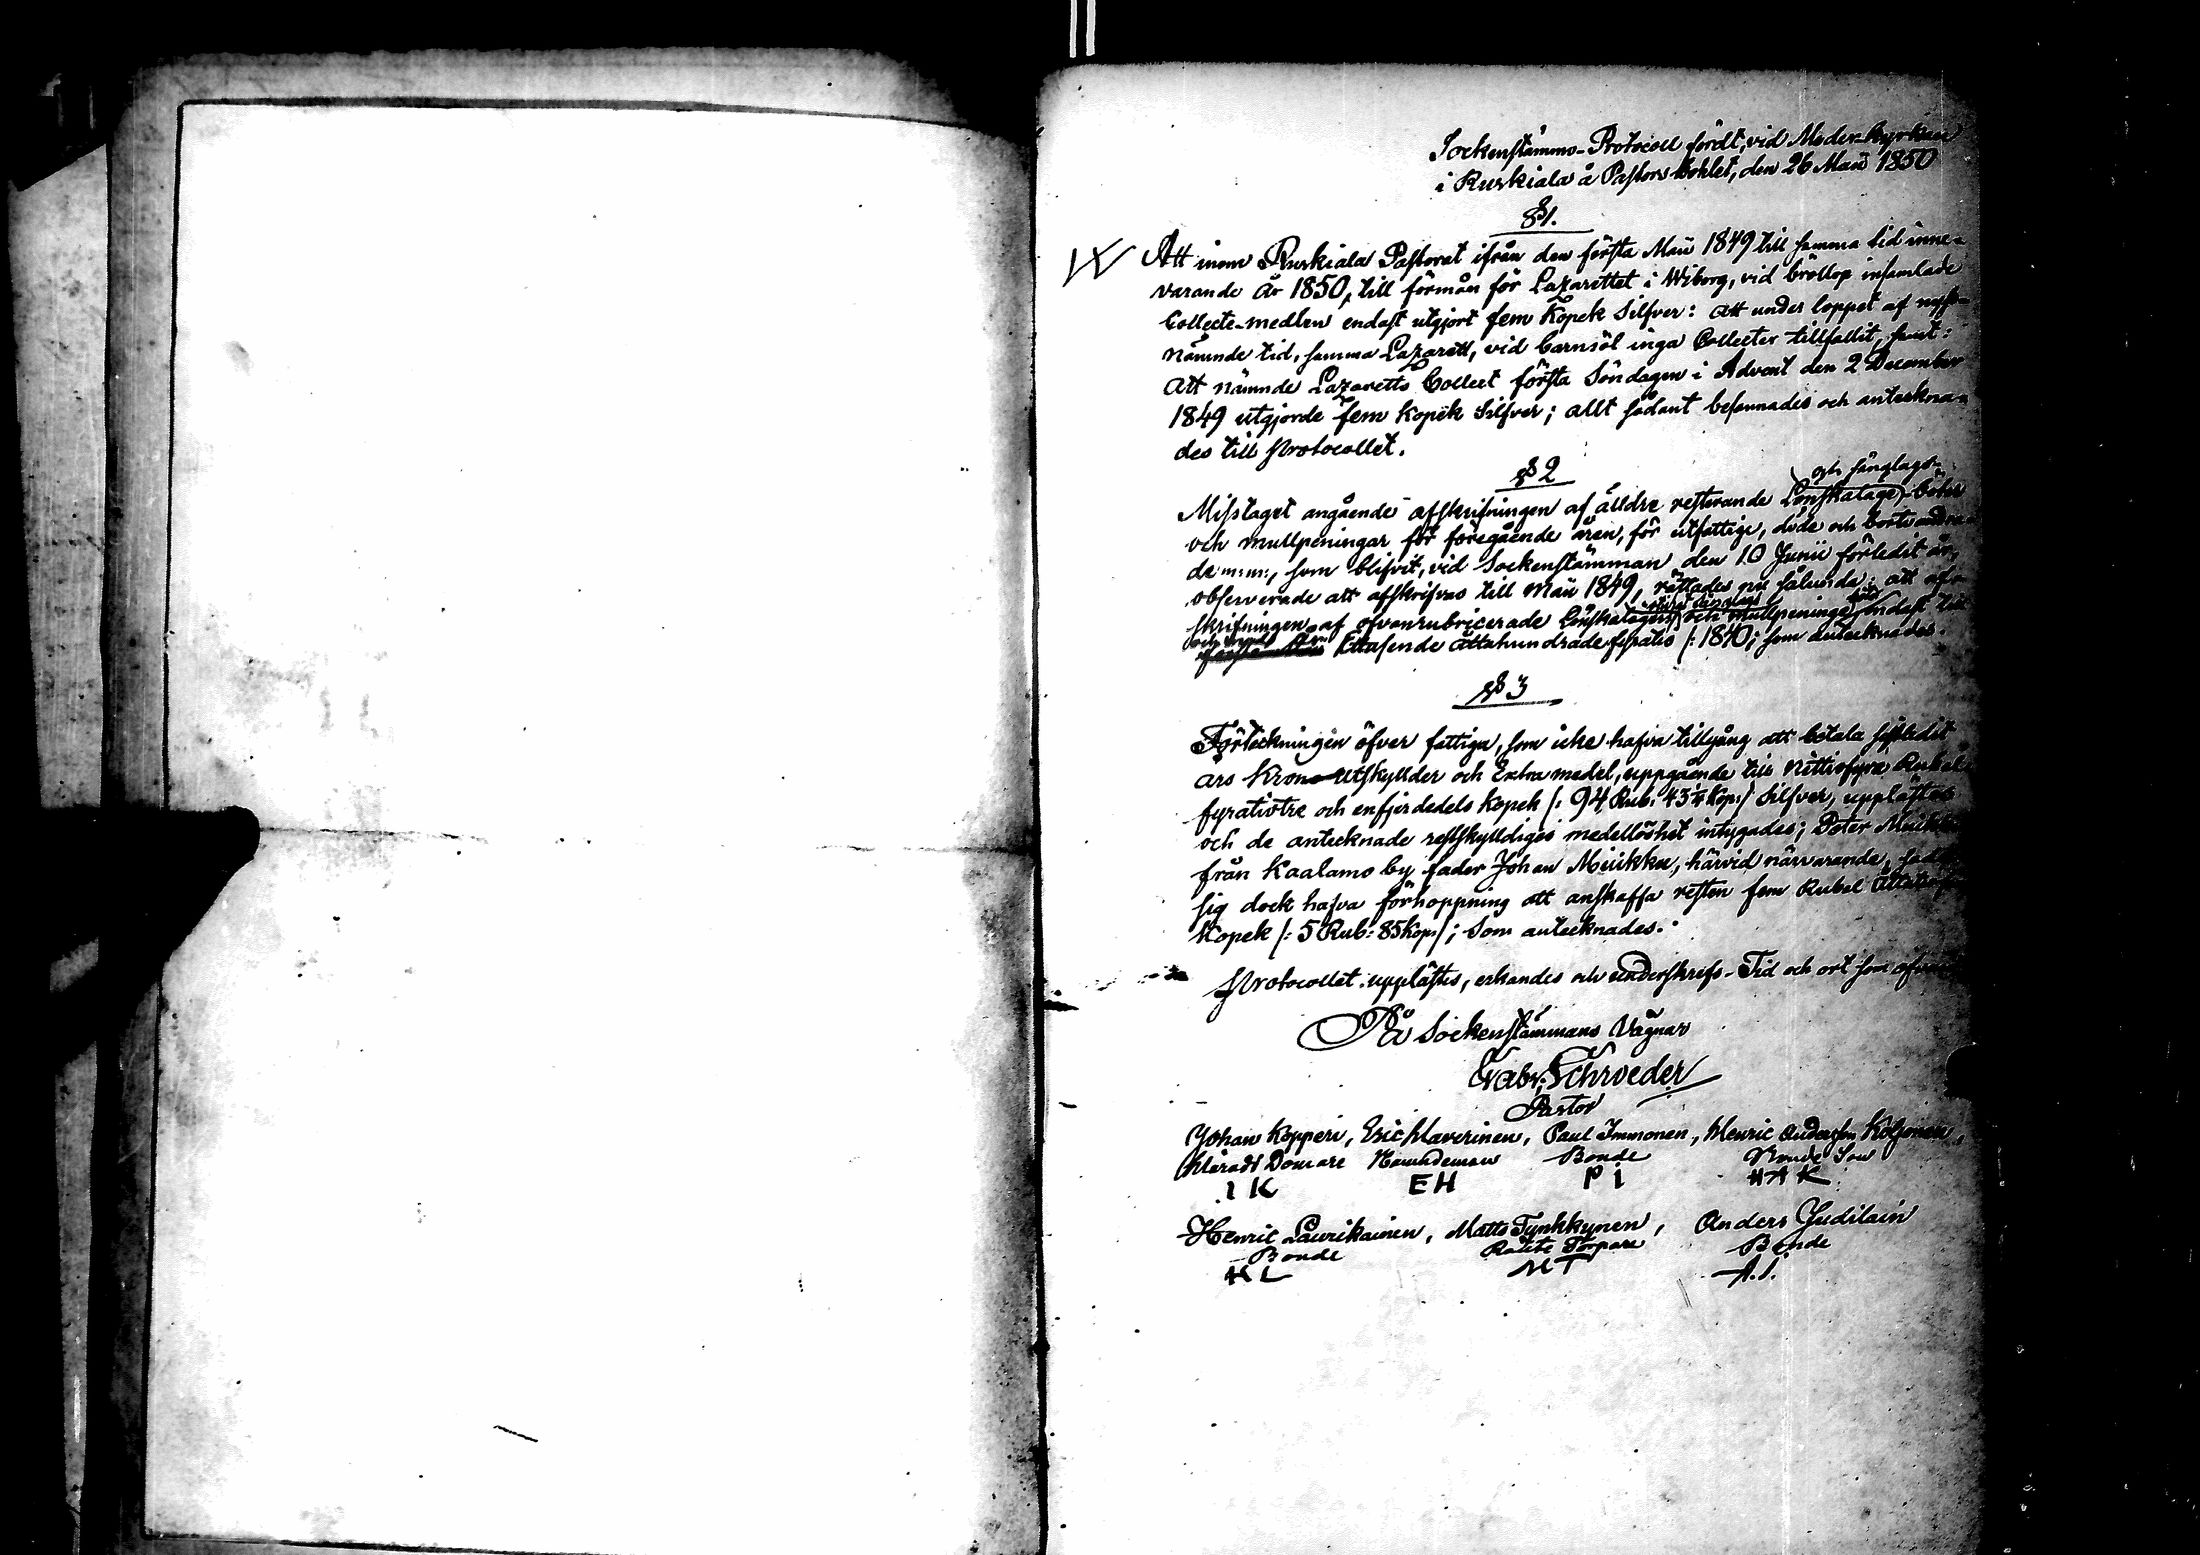 Sockenstämmo-Protocoll fördt, vid Moder-kyrkan
i Ruskiala å Pastors bohlet, den 26 Maii 1850
§1.
Att inom Ruskiala Pastorat ifrån den första Maii 1849 till samma tid inne-
varande år 1850, till förmån för Lazarettet i Wiborg, vid bröllop insamlade
Collecte-medlen endast utgjort fem Kopek Silfver: att under loppet af nyss-
nämnde tid, samma Lazarett, vid barnsöl inga Collecter tillfallit, samt:
att nämnde Lazaretts Collect första Söndagen i Advent den 2 December
1849 utgjorde fem kopek Silfver; allt sådant besannades och antekna-
des till Protocollet.
§2
och fånglags-
Misstaget angående afskrifningen af älldre resterande Lönskalage böter
och mullpeningar för föregående åren, för utfattige, döde och bortvandra-
de m: m:, som blifvit, vid Sockenstämman den 10 Junii förledit år,
observerade att afskrifvas till Maii 1849, rättades nu sålunda: att af-
skrifningen af ofvanrubricerade Lönskalages och Mullpeninge endast till
och med Ettusende åttahundrade fyratio /: 1840; som antecknades.
§3
Förteckningen öfver fattiga, som icke hafva tillgång att betala sistledit
års Krono Utskyllder och Extra medel, uppgående till Nittiofyra Rubel
fyratiotre och enfjerdedels kopek /: 94 Rub: 43¼ Kop:/ Silfver, upplästes
och de antecknade restskyldiges medellöshet intygades; Peter Miikku
från Kaalamo by fader Johan Miikku, härvid närvarande, sade
sig dock hafva förhoppning att anskaffa resten fem Rubel
Kopek /: 5 Rub: 85 Kop:/; Som antecknades.
Protocollet upplästes, erkandes och underskrefs - Tid och ort som
På Sockenstämmans Vägnar
Gabr: Schroeder
Pastor
Johan Kopperi, Eric Haverinen, Paul Immonen, Henric Andersson Koljonen,
Härads Domare Nämndeman Bonde Bonde Son
I K E H P I H A K
Henric Laurikainen, Matts Tynkkynen, Anders Judilain
Bonde Torpare Bonde
H L M T A. I.